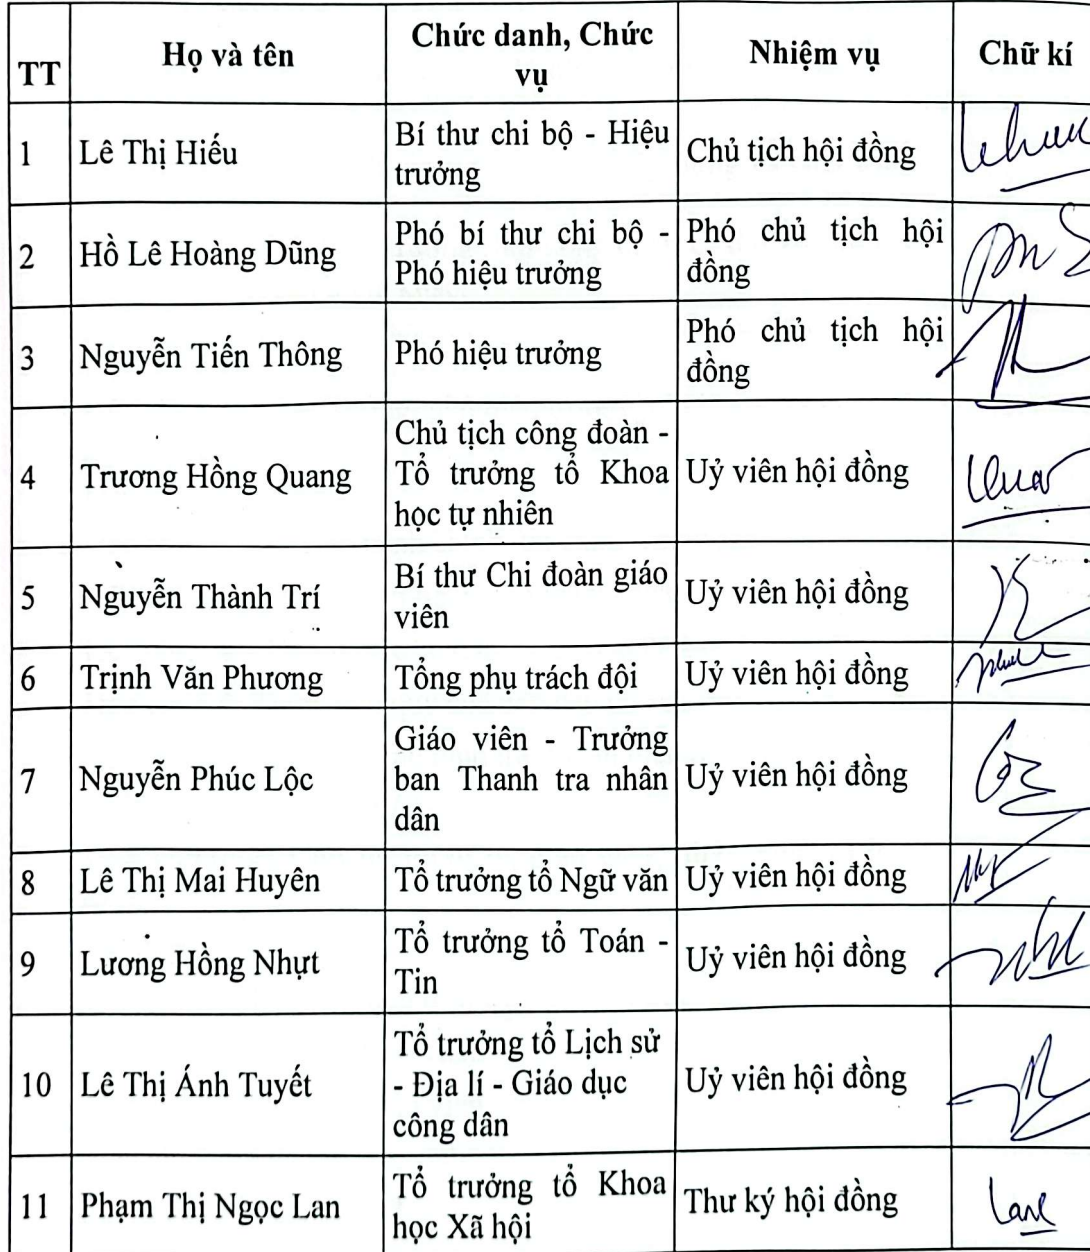 TT Họ và tên Chức danh, Chức vụ Nhiệm vụ Chữ kí
1 Lê Thị Hiếu Bí thư chi bộ - Hiệu trưởng Chủ tịch hội đồng
2 Hồ Lê Hoàng Dũng Phó bí thư chi bộ - Phó hiệu trưởng Phó chủ tịch hội đồng
3 Nguyễn Tiến Thông Phó hiệu trưởng Phó chủ tịch hội đồng
4 Trương Hồng Quang Chủ tịch công đoàn - Tổ trưởng tổ Khoa học tự nhiên Uỷ viên hội đồng
5 Nguyễn Thành Trí Bí thư Chi đoàn giáo viên Uỷ viên hội đồng
6 Trịnh Văn Phương Tổng phụ trách đội Uỷ viên hội đồng
7 Nguyễn Phúc Lộc Giáo viên - Trưởng ban Thanh tra nhân dân Uỷ viên hội đồng
8 Lê Thị Mai Huyên Tổ trưởng tổ Ngữ văn Uỷ viên hội đồng
9 Lương Hồng Nhựt Tổ trưởng tổ Toán - Tin Uỷ viên hội đồng
10 Lê Thị Ánh Tuyết Tổ trưởng tổ Lịch sử - Địa lí - Giáo dục công dân Uỷ viên hội đồng
11 Phạm Thị Ngọc Lan Tổ trưởng tổ Khoa học Xã hội Thư ký hội đồng